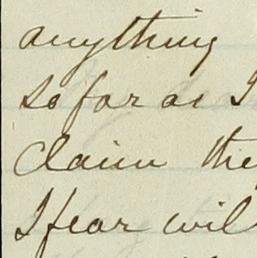 anything
so far as I
claim the
I fear wil